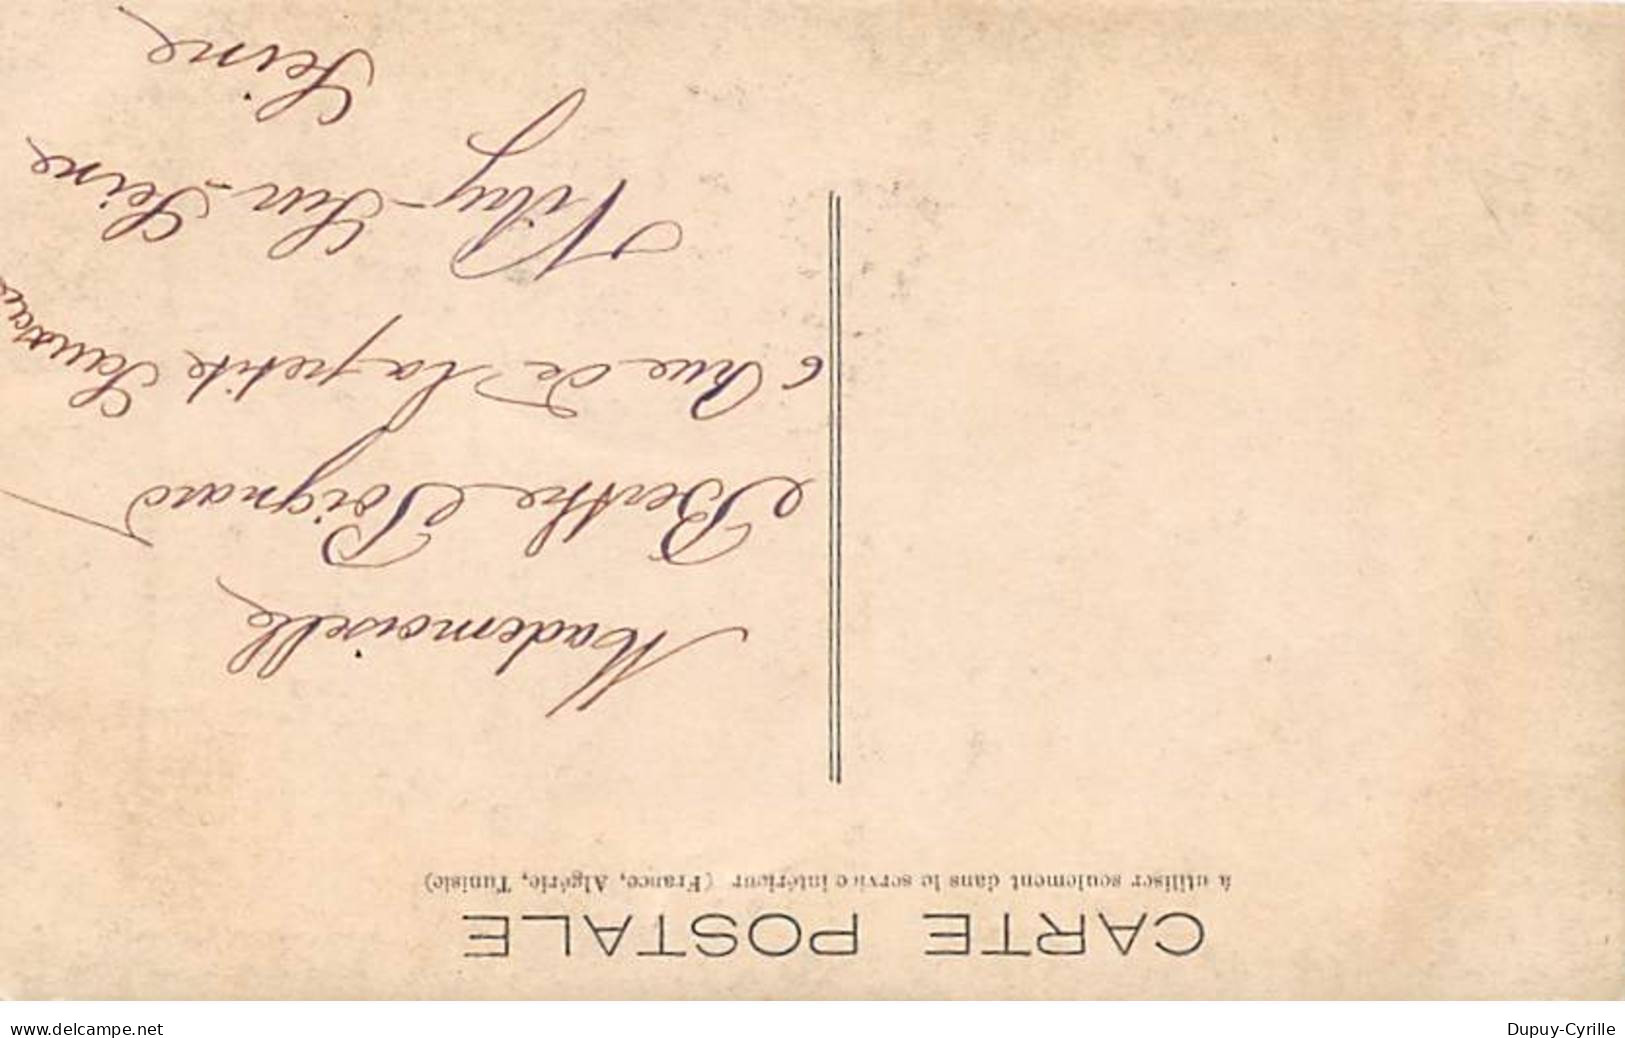 CARTE POSTALE
à utiliser seulement dans le service intérieur (France, Algérie, Tunisie)
Mademoiselle
Berthe Poignard
6 rue de la petite
Vitry-Sur-Seine
Seine
www.delcampe.net
Dupuy-Cyrille